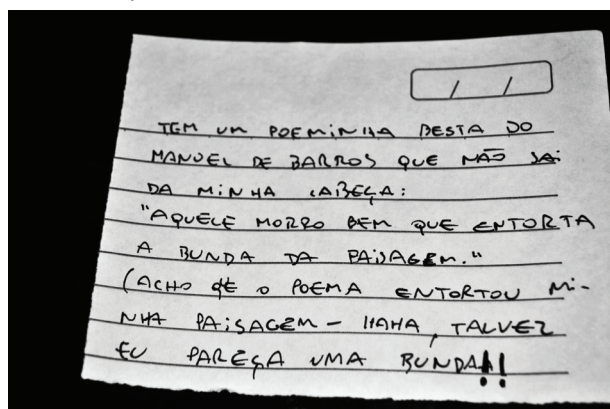 / /
TEM UM POEMINHA BESTA DO
MANOEL DE BARROS QUE NÃO SAI
DA MINHA CABEÇA:
"AQUELE MORRO BEM QUE ENTORTA
A BUNDA DA PAISAGEM."
(ACHO QE O POEMA ENTORTOU MI-
NHA PAISAGEM - HAHA, TALVEZ
EU PAREÇA UMA BUNDA!!